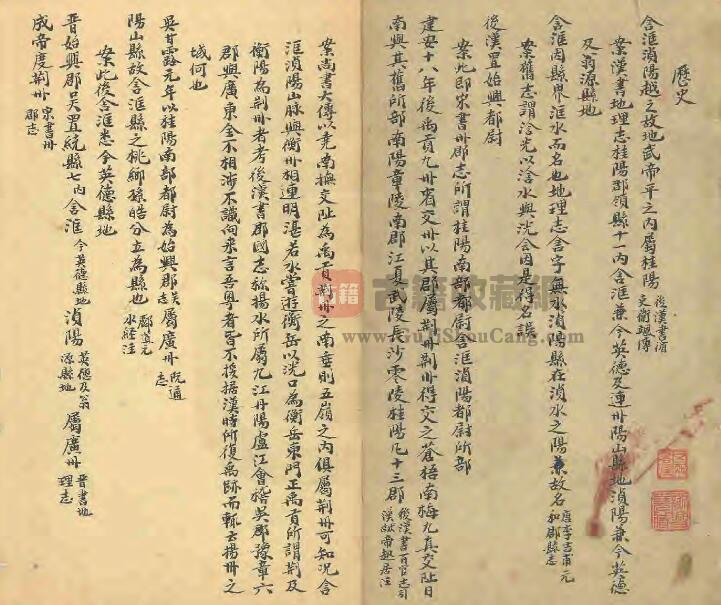 歷史
含洭湞陽越之故地武帝平之內屬桂陽 後漢書循吏衛颯傳
案漢書地理志桂陽郡領縣十一內含洭兼今英德及連卅陽山縣地湞陽兼今英德
及翁源縣地
含洭因縣界洭水而名也地理志含字無水湞陽縣在湞水之陽兼故名 唐李吉甫元和郡縣志
案舊志謂浛光以浛水與洸会因是得名誤
後漢置始興都尉
案此即宋書卅郡志所謂桂陽南部都尉含洭湞陽都尉所部
建安十八年復禹貢九卅省交卅以其郡屬荆卅荆卅得交之蒼梧南海九真交阯日
南與其舊所部南陽章陵南郡江夏武陵長沙零陵桂陽凡十三郡 後漢書百官志引漢献帝起居注
案尚書大傳以堯南撫交阯為禹貢荆卅之南垂則五嶺之內俱屬荆卅可知況含
洭湞陽山脉與衡卅相連明湛若水嘗遊衡岳以洸口為衡岳東門正禹貢所謂荆及
衡陽為荆卅者考後漢書郡國志称揚水所屬九江丹陽盧江會稽吳郡豫章六
郡與廣東全不相涉不識向来言吾粤者皆不援据漢時所復禹跡而輒云揚卅之
域何也
吳甘露元年以桂陽南部都尉為始興郡 吳志 屬廣卅 阮通志
陽山縣故含洭縣之桃鄉孫皓分立為縣也 酈道元水經注
案此後含洭悉今英德縣地
晉始興郡吳置統縣七內含洭 今英德縣地 湞陽 英德及翁源縣地 屬廣卅 晉書地理志
成帝度荆卅 宋書卅郡志
古籍收藏網
www.GuJiShouCang.com